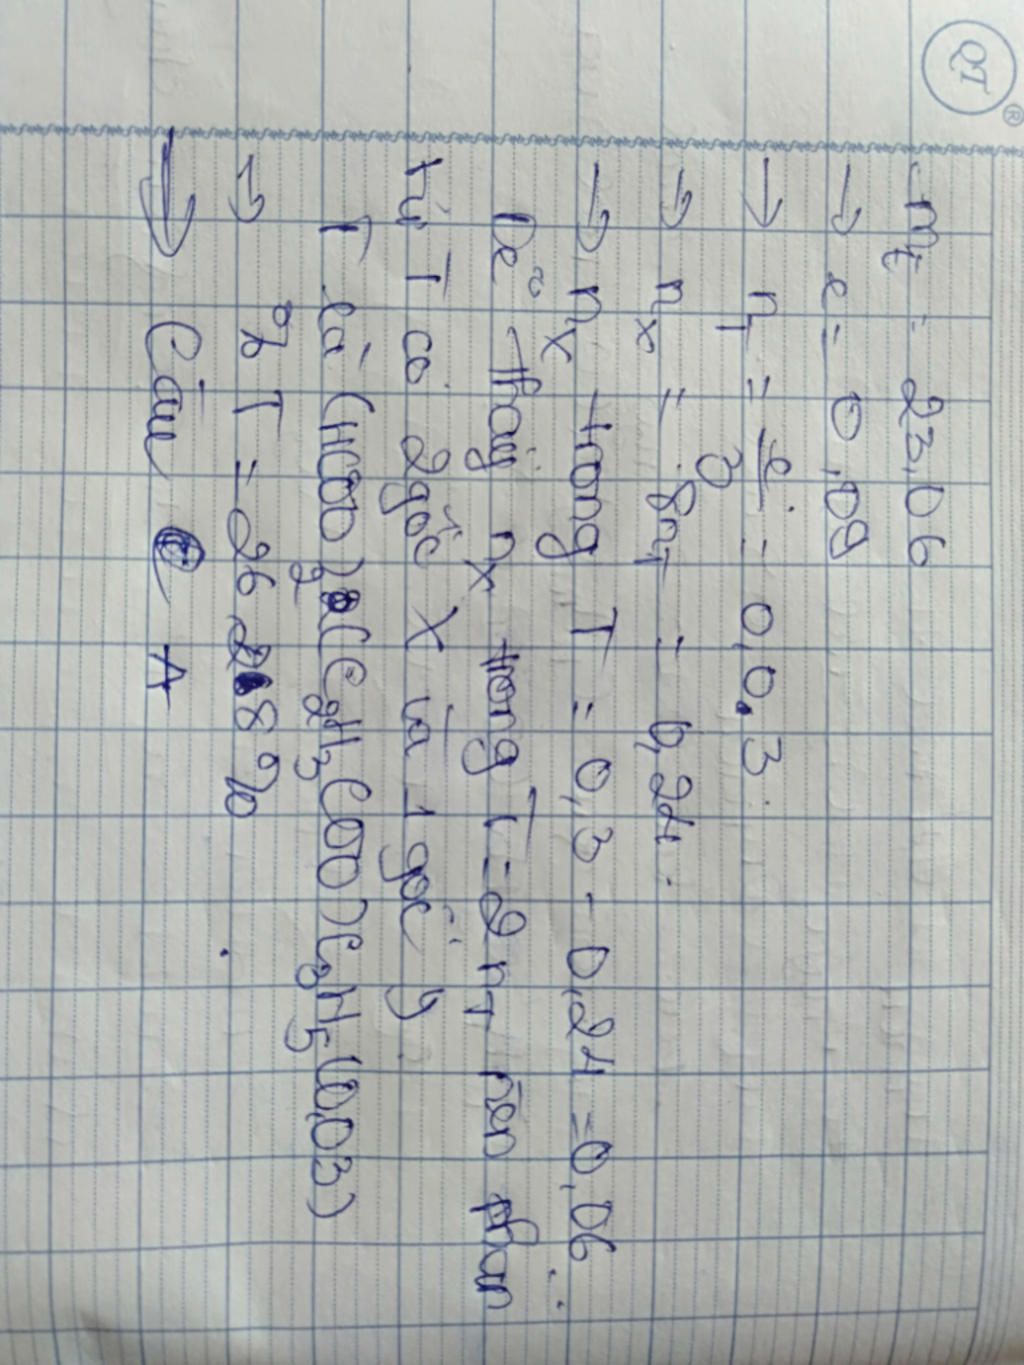 QT
®
m_E = 23,06
→ e = 0,09
→ n_T = e/3 = 0,03
→ n_X = 8n_T = 0,24
→ n_X trong T = 0,3 - 0,24 = 0,06
Dễ thấy n_X trong T = 2n_T nên phân
tử T có 2 gốc X và 1 gốc Y
T là (HCOO)₂(C₂H₃COO)C₃H₅ (0,03)
→ %T = 26,28%
→ Câu A